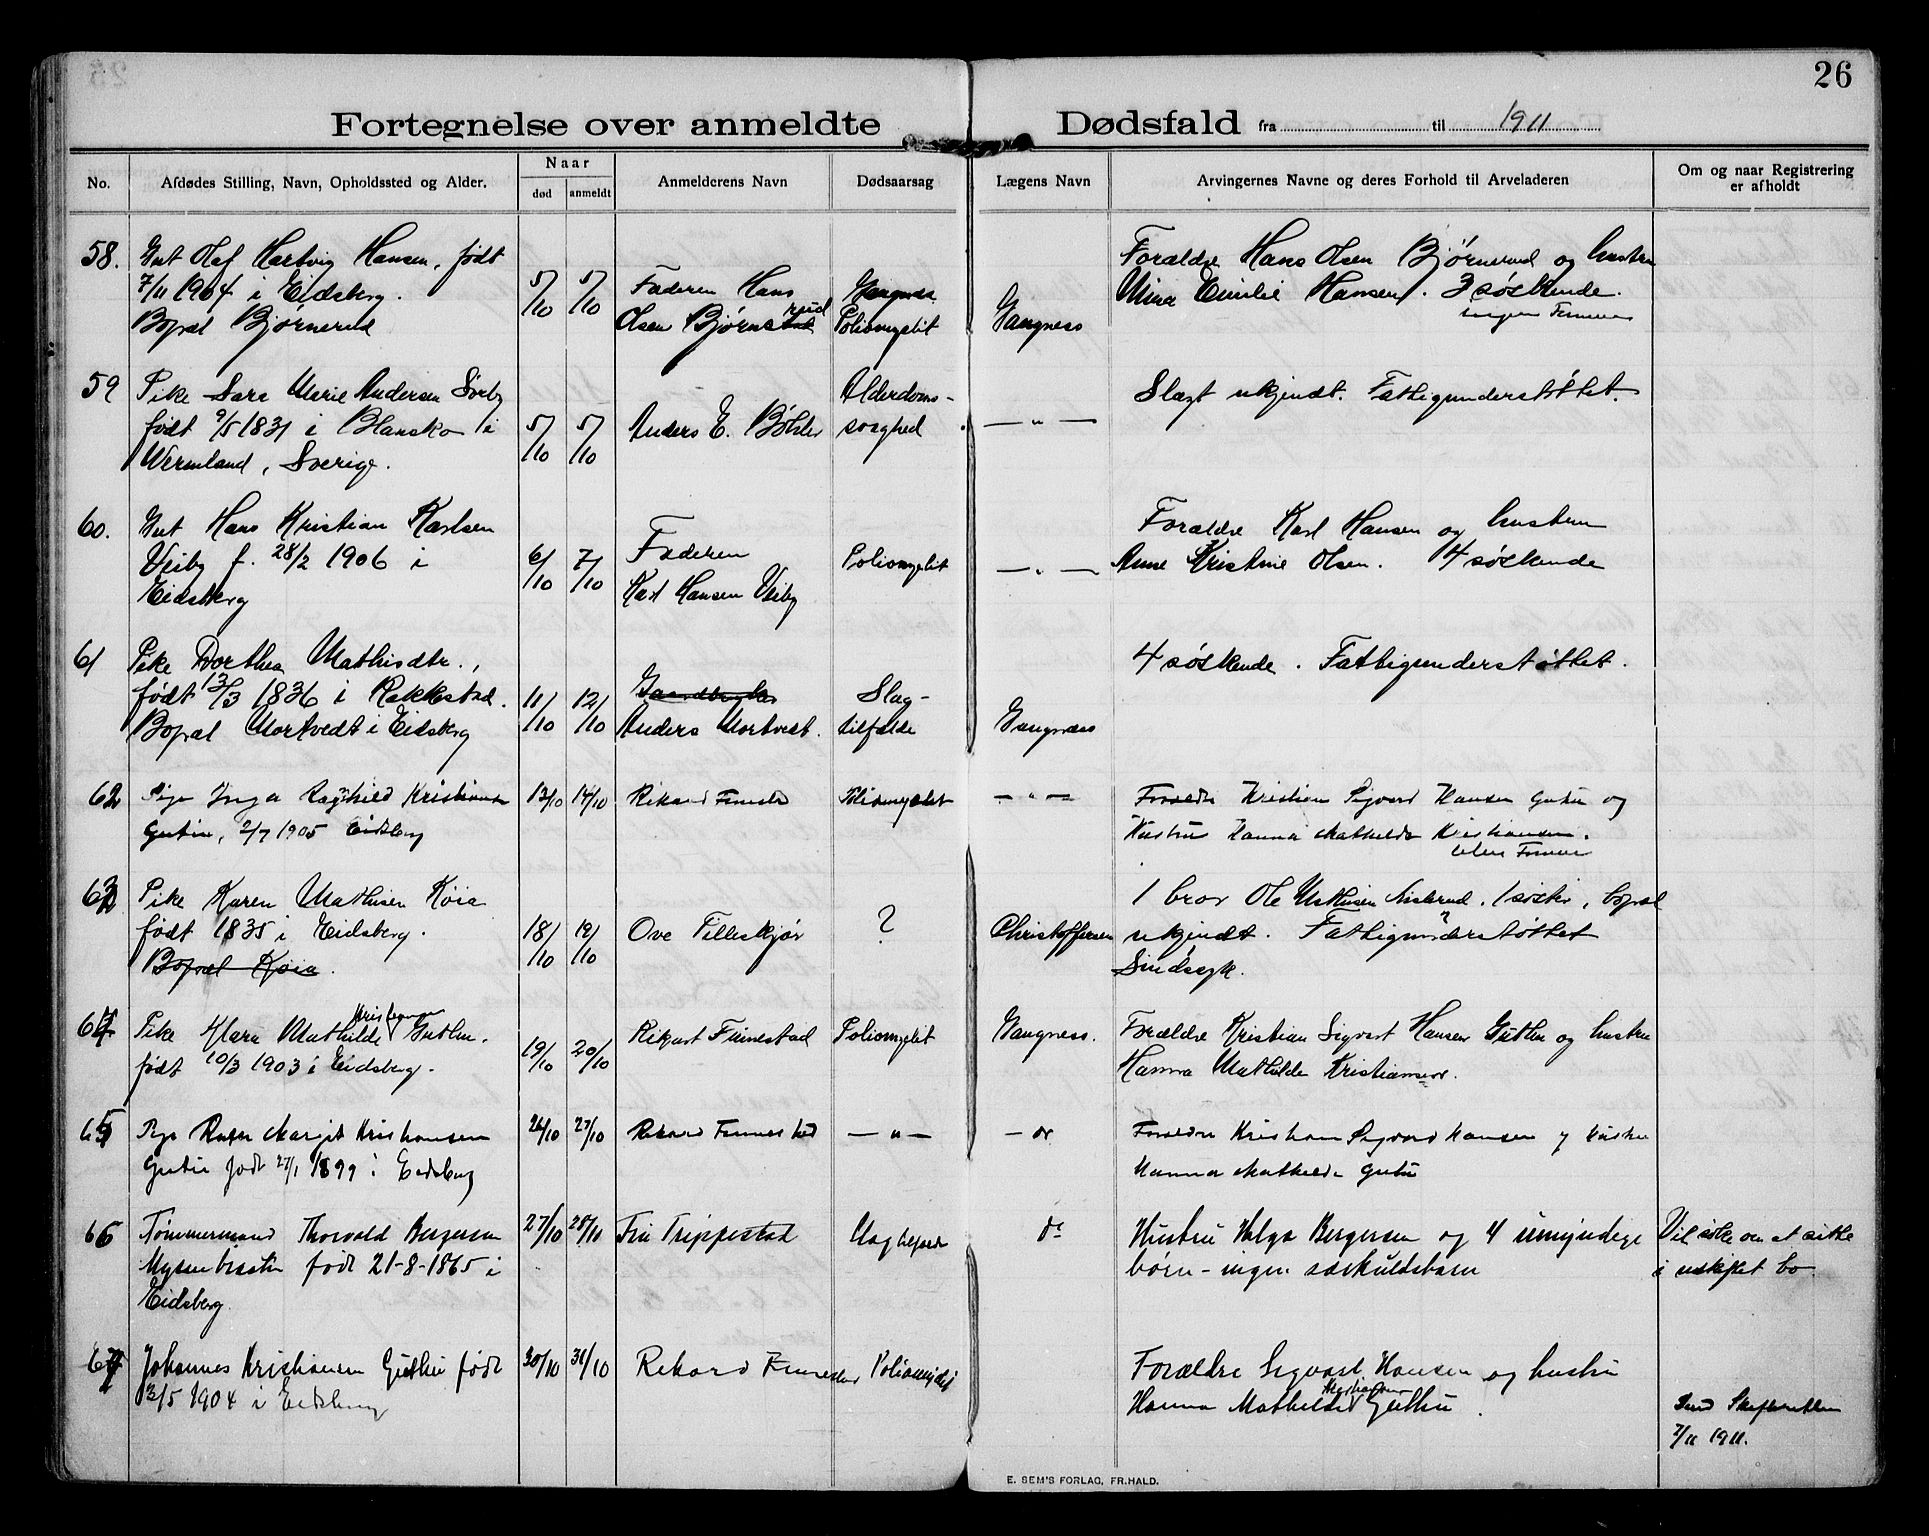 26
Fortegnelse over anmeldte Dødsfald fra til 1911
No.
Afdødes Stilling, Navn, Opholdssted og Alder.
Naar
død anmeldt
Anmelderens Navn
Dødsaarsag
Lægens Navn
Arvingernes Navne og deres Forhold til Arveladeren
Om og naar Registrering
er afholdt
58.
Gut Olaf Hartvig Hansen, født
7/11 1904 i Eidsberg.
Bopæl Bjørnerud
5/10 5/10
Faderen Hans
Olsen Bjørnerud
Poliomyelit
Gangness
Forældre Hans Olsen Bjørnerud og hustru
Mina Emilie Hansen. 3 søskende.
ingen Formue
59
Pike Sara Marie Andersen Sørby
født 9/5 1831 i Blansko i
Wermland, Sverige.
5/10 5/10
Anders E. Böhler
Alderdoms-
svaghed
— " —
Slægt ukjendt. Fattigunderstøttet.
60.
Gut Hans Kristian Karlsen
Veiby f. 28/2 1906 i
Eidsberg
6/10 7/10
Faderen
Karl Hansen Veiby
Poliomyelit
— " —
Forældre Karl Hansen og hustru
Anne Kristine Olsen. 4 søskende
61
Pike Dorthea Mathisdtr.,
født 13/3 1836 i Rakkestad.
Bopæl Mortvedt i Eidsberg
11/10 12/10
Anders Mortvedt.
Slag-
tilfælde
Gangness
4 søskende. Fattigunderstøttet.
62
Pige Inga Ragnhild Kristiansen
Gutu, 2/7 1905 Eidsberg
13/10 14/10
Rikard Finestad
Poliomyelit
— " —
Forældre Kristian Sigvard Hansen Gutu og
Hustru Hanna Mathilde Kristiansen.
uden Formue
63
Pike Karen Mathisen Köia
født 1835 i Eidsberg.
Bopæl Köia.
18/10 19/10
Ove Tilleskjør
?
Christoffersen
1 bror Ole Mathisen, 1 søster, bopæl
ukjendt. Fattigunderstøttet
Sindssyk.
64
Pike Klara Mathilde Kristiansen Guthu.
født 10/3 1903 i Eidsberg.
19/10 20/10
Rikart Finnestad
Poliomyelit
Gangness.
Forældre Kristian Sigvart Hansen Guthu og hustru
Hanna Mathilde Kristiansen.
65
Pige Margit Kristiansen
Gutu født 27/1 1899 i Eidsberg
26/10 27/10
Rikard Finnestad
— " —
Forældre Kristian Sigvard Hansen og Hustru
Hanna Mathilde Gutu
66
Tømmermand Thorvald Bergersen
Mysen født 21-8-1865 i
Eidsberg.
27/10 28/10
Fru Trippestad
do
Hustru Helga Bergersen og 4 umyndige
børn - ingen særkuldsbarn
Vil søke om at sitte
i uskiftet bo.
67
Johannes Kristiansen Guthu født
13/5 1904 i Eidsberg
30/10 31/10
Rikard Finnestad
Poliomyelit
Forældre Sigvart Hansen og hustru
Hanna Mathilde Kristiansen Guthu.
Send Skifteretten
7/11 1911.
E. SEM'S FORLAG, FR.HALD.